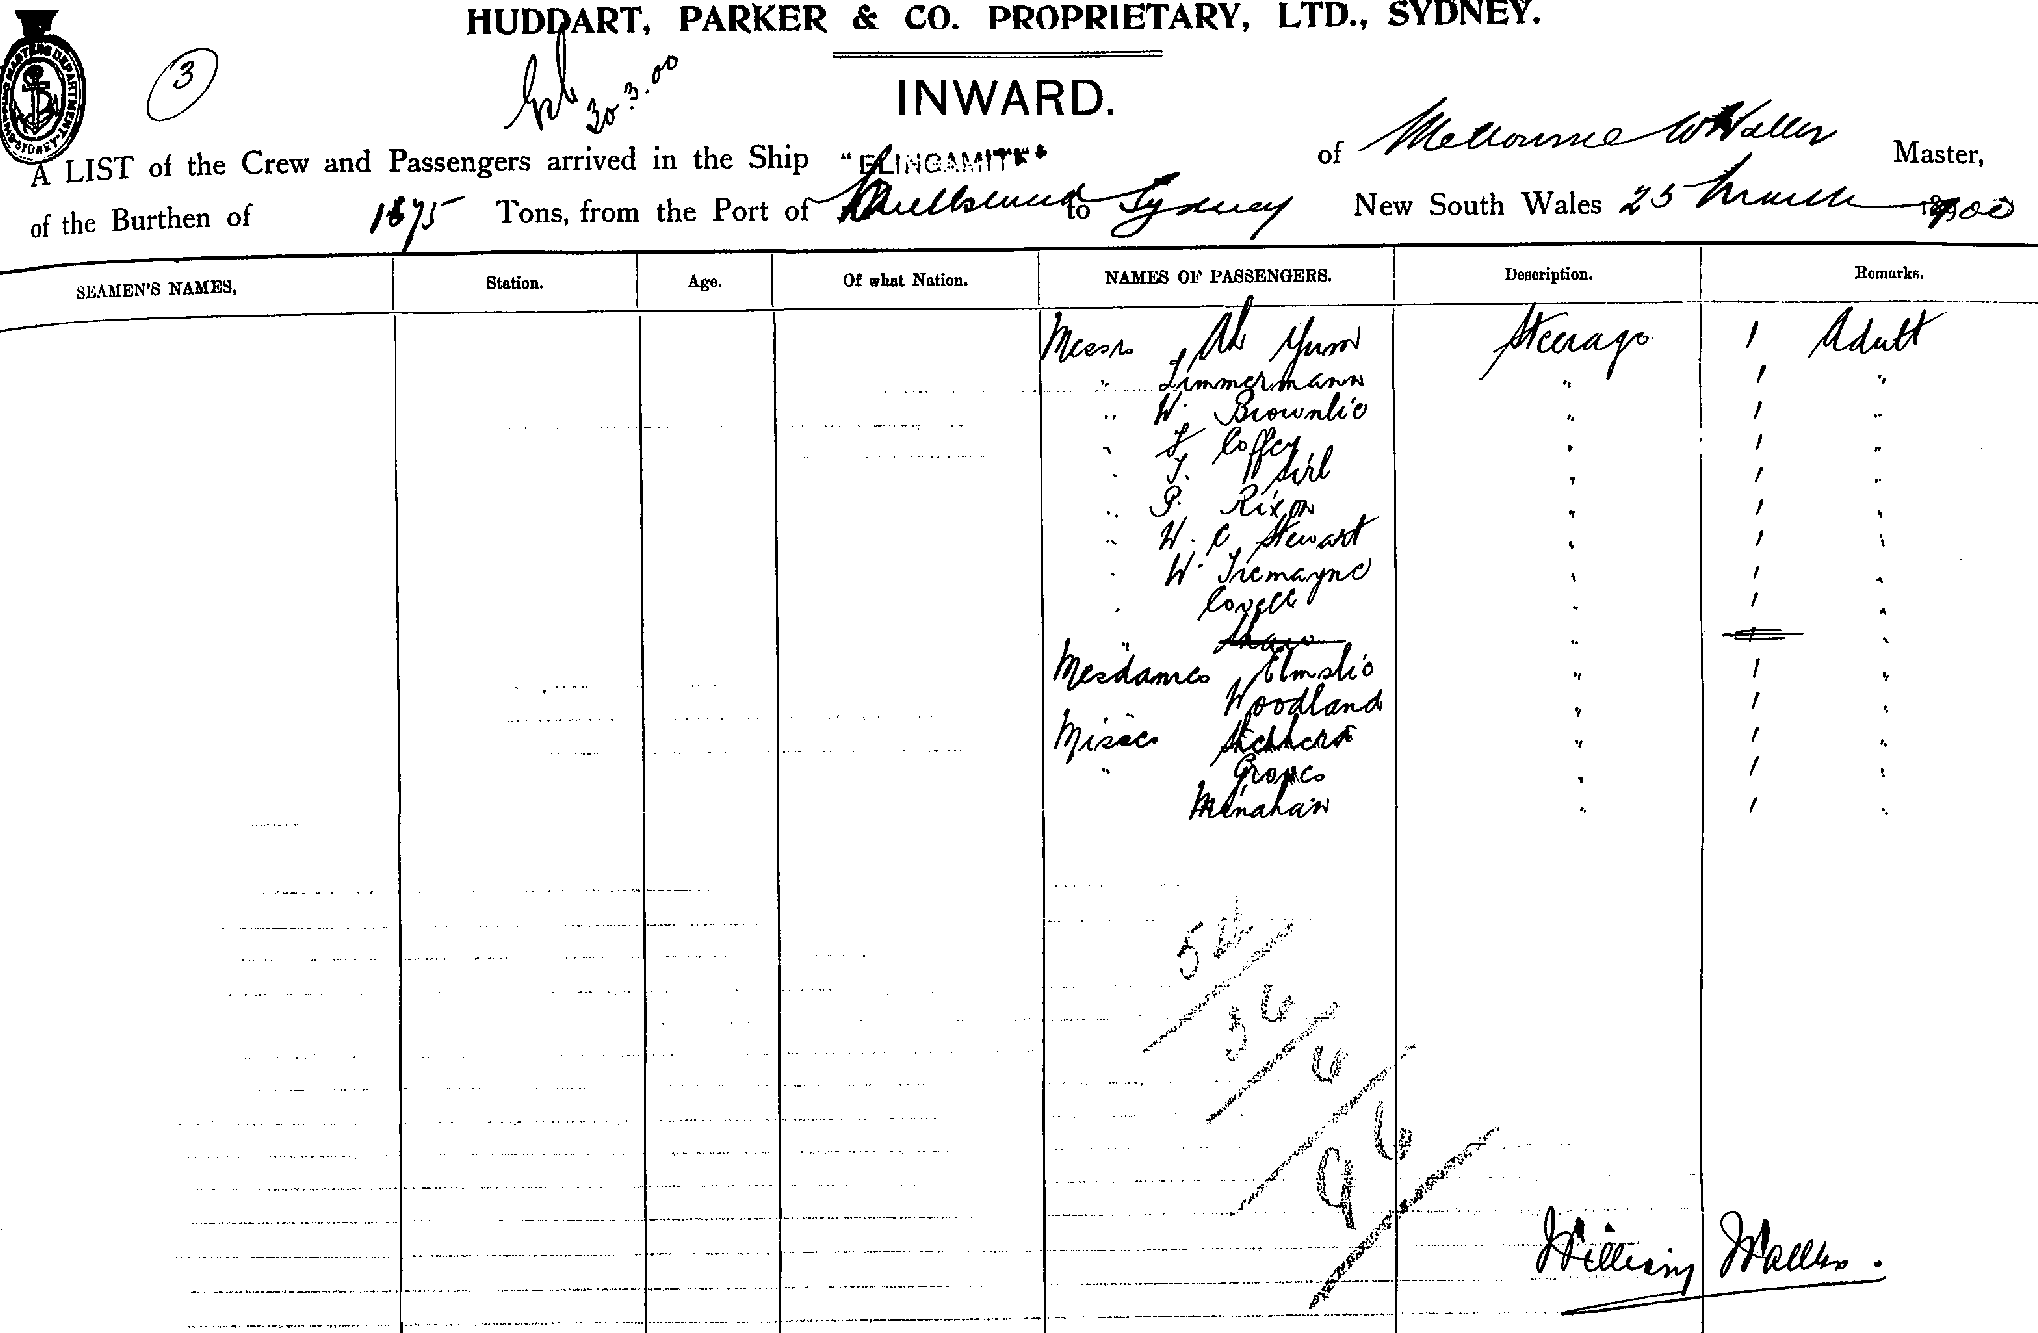 HUDDART, PARKER & CO. PROPRIETARY, LTD., SYDNEY.
3
30.3.00
INWARD.
A LIST of the Crew and Passengers arrived in the Ship "ELINGAMITE" of Melbourne W Waller Master,
of the Burthen of 1675 Tons, from the Port of Melbourne to Sydney New South Wales 25 March 1900
SEAMEN'S NAMES, Station. Age. Of what Nation. NAMES OF PASSENGERS. Description. Remarks.
Messrs Ah Yum Steerage 1 Adult
" Zimmermann " 1 "
" W. Brownlie " 1 "
" Coffey " 1 "
" T. Sirl " 1 "
" P. Rixon " 1 "
" W. C Stewart " 1 "
" W. Tremayne " 1 "
" Covell " 1 "
" Shaw " 1 "
Mesdames Elmslie " 1 "
Woodland " 1 "
Misses " 1 "
" Groves " 1 "
Menahan " 1 "
54
36
6
96
William Waller.